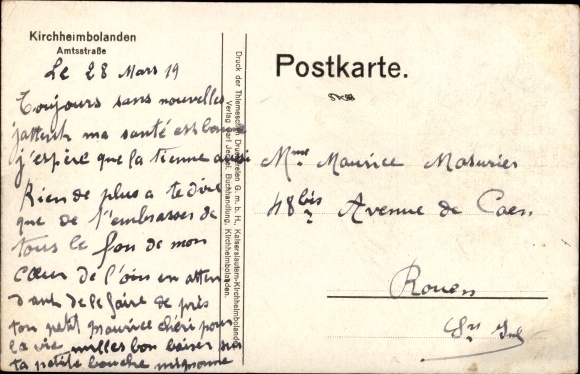 Kirchheimbolanden
Amtsstraße
Le 28 Mars 19
Toujours sans nouvelles
j'attent ma santé est bonne
j'espère que la tienne aussi
Rien de plus a te dire
que de t'embrasser de
tous le fon de mon
Cœur de l'oin en atten
dant de le faire de près
ton petit Maurice chéri pour
la vie milles bon baiser sur
ta petite bouche mignonne
Druck der Thiemeschen Druckereien G. m. b. H., Kaiserslautern-Kirchheimbolanden
Verlag Carl Buchhandlung, Kirchheimbolanden.
Postkarte.
Mme Maurice Masurier
48 bis Avenue de Caen
Rouen
Sne Inf